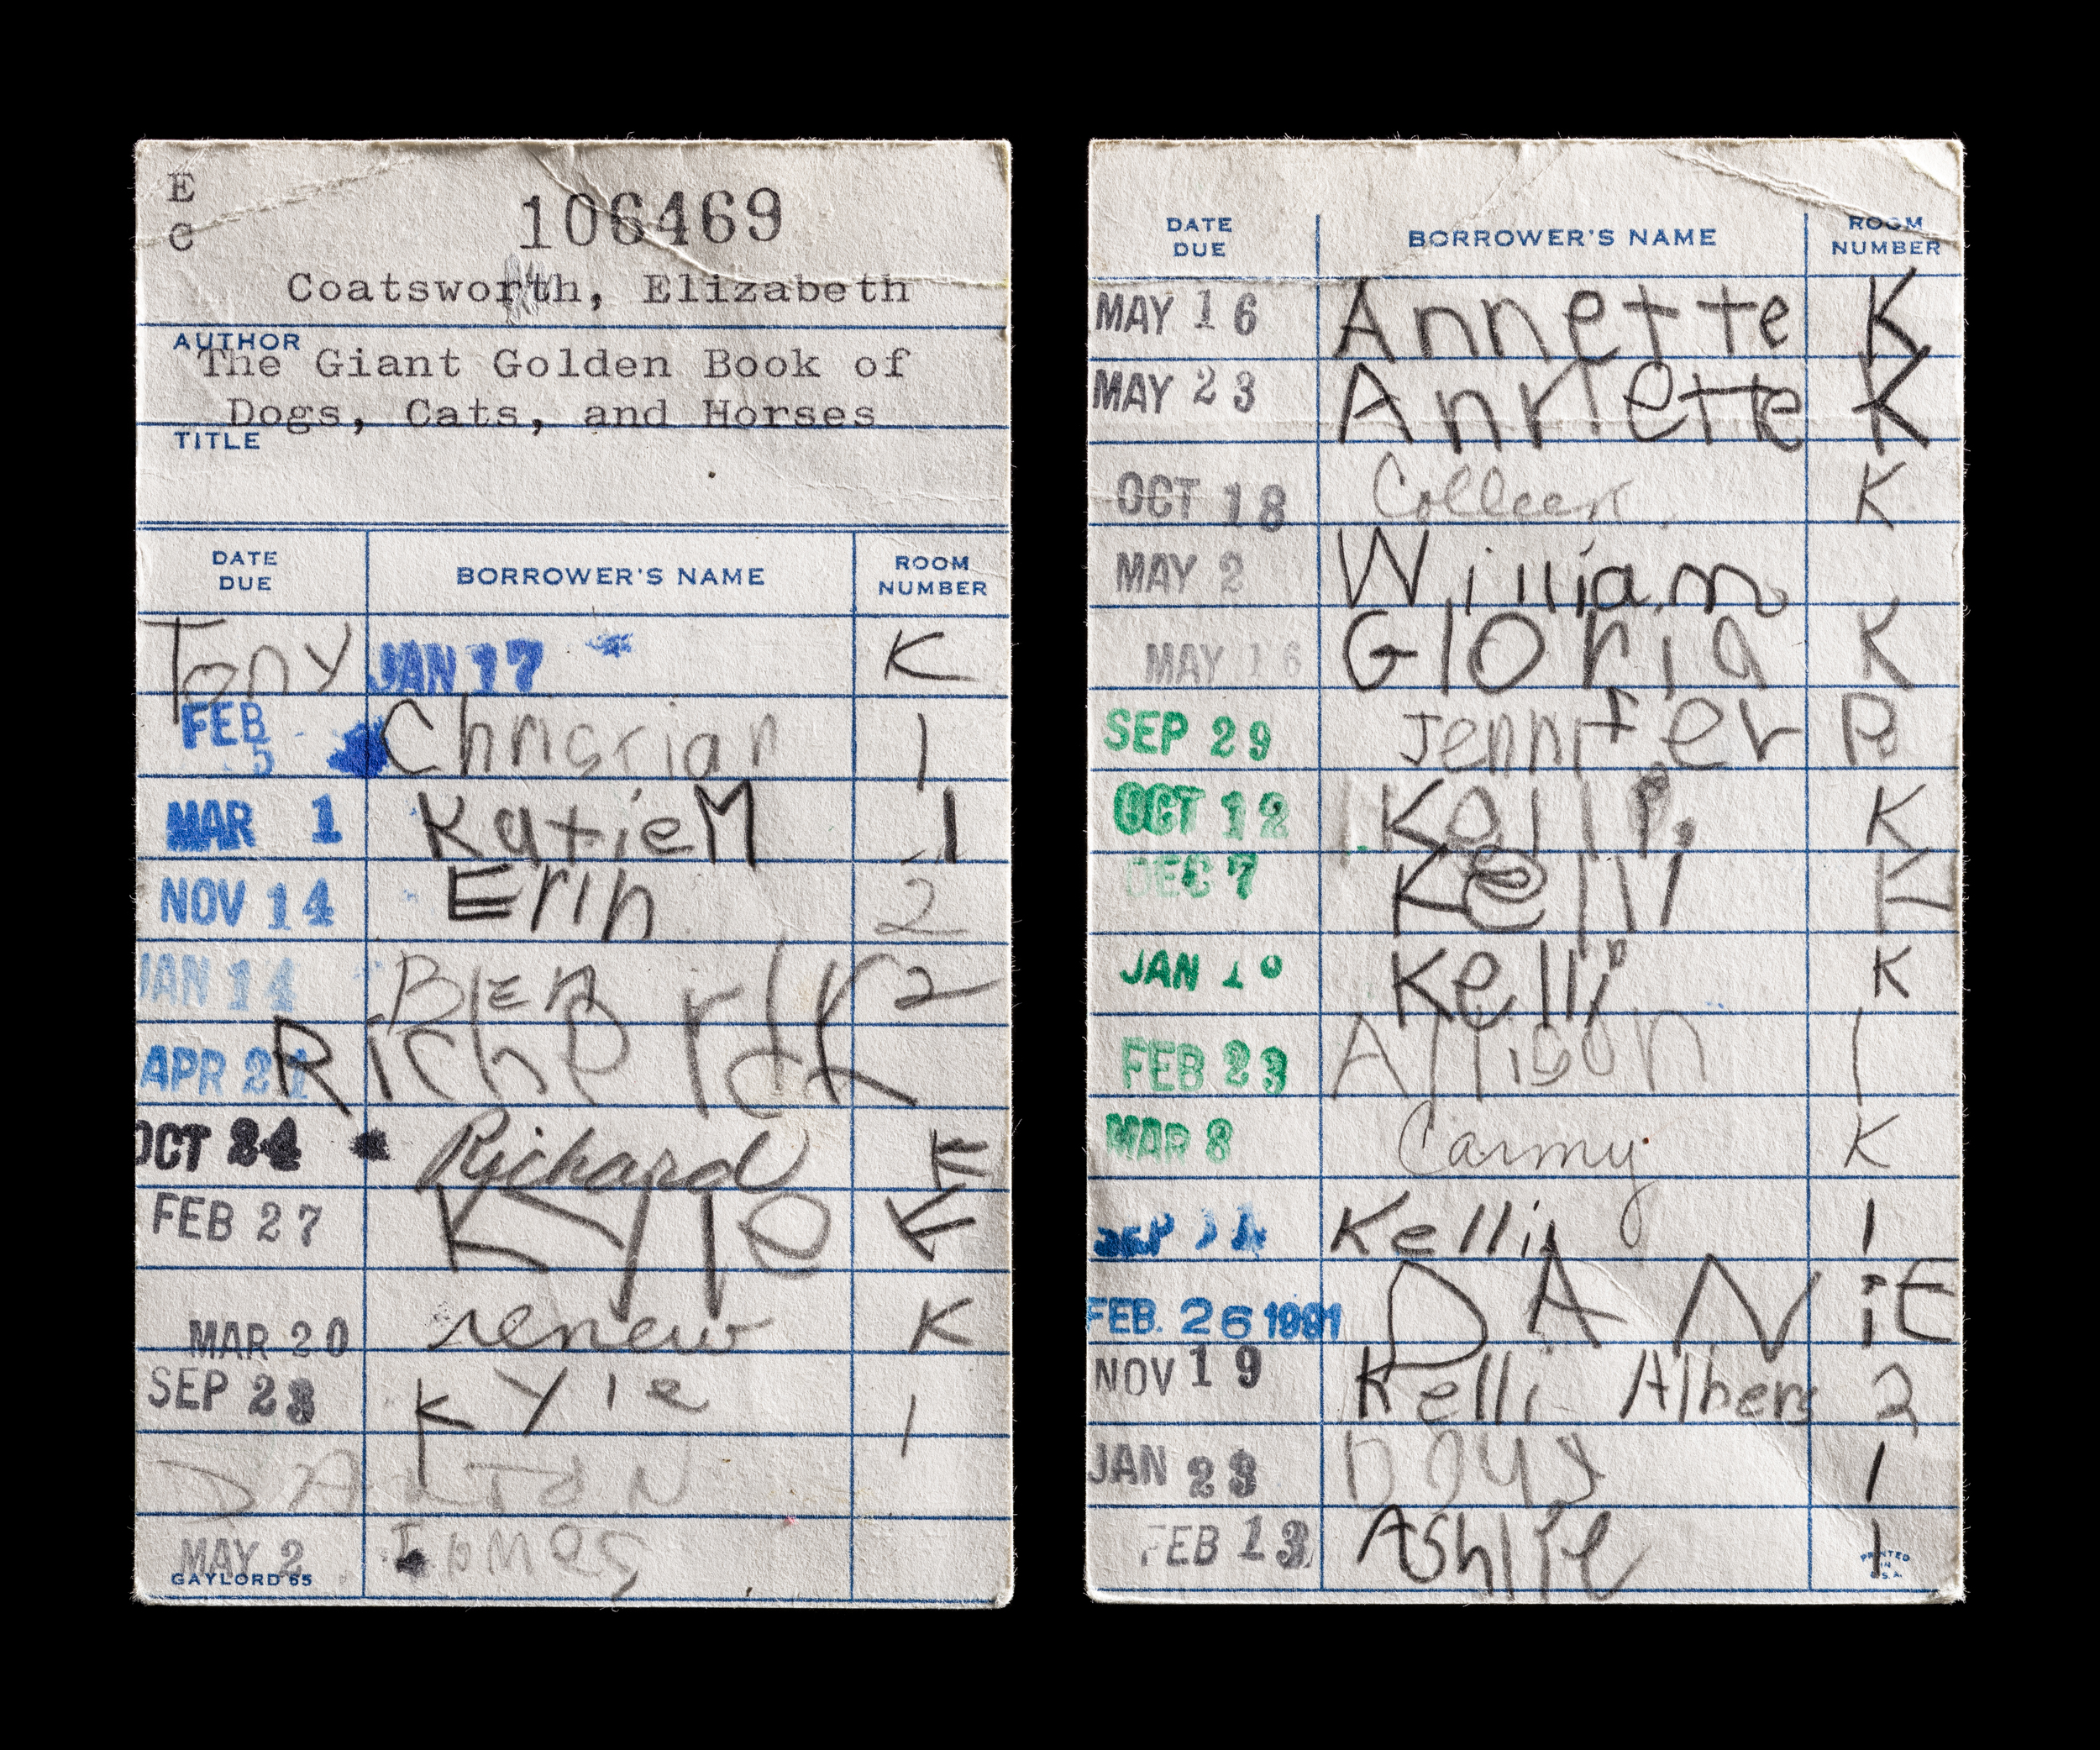 E
C
106469
Coatsworth, Elizabeth
AUTHOR
The Giant Golden Book of
Dogs, Cats, and Horses
TITLE
DATE DUE BORROWER'S NAME ROOM NUMBER
Tony JAN 17 K
FEB 5 Christian 1
MAR 1 Katie M 1
NOV 14 Erin 2
JAN 14 2
APR 21 Richerd
OCT 24 Richard K
FEB 27 Kyle K
MAR 20 renew K
SEP 28 Kyle 1
DALTON
MAY 2 James
GAYLORD 65
DATE DUE BORROWER'S NAME ROOM NUMBER
MAY 16 Annette K
MAY 23 Annette K
OCT 18 Colleen K
MAY 2 William
MAY 16 Gloria K
SEP 29 Jennifer P
OCT 12 Kelli K
DEC 7 Kelli K
JAN 10 Kelli K
FEB 23 Allison 1
MAR 8 Carmy K
SEP Kelli 1
FEB. 26 1991 DANiE
NOV 19 Kelli Albers 2
JAN 23 1
FEB 13 Ashlie 1
PRINTED IN U.S.A.